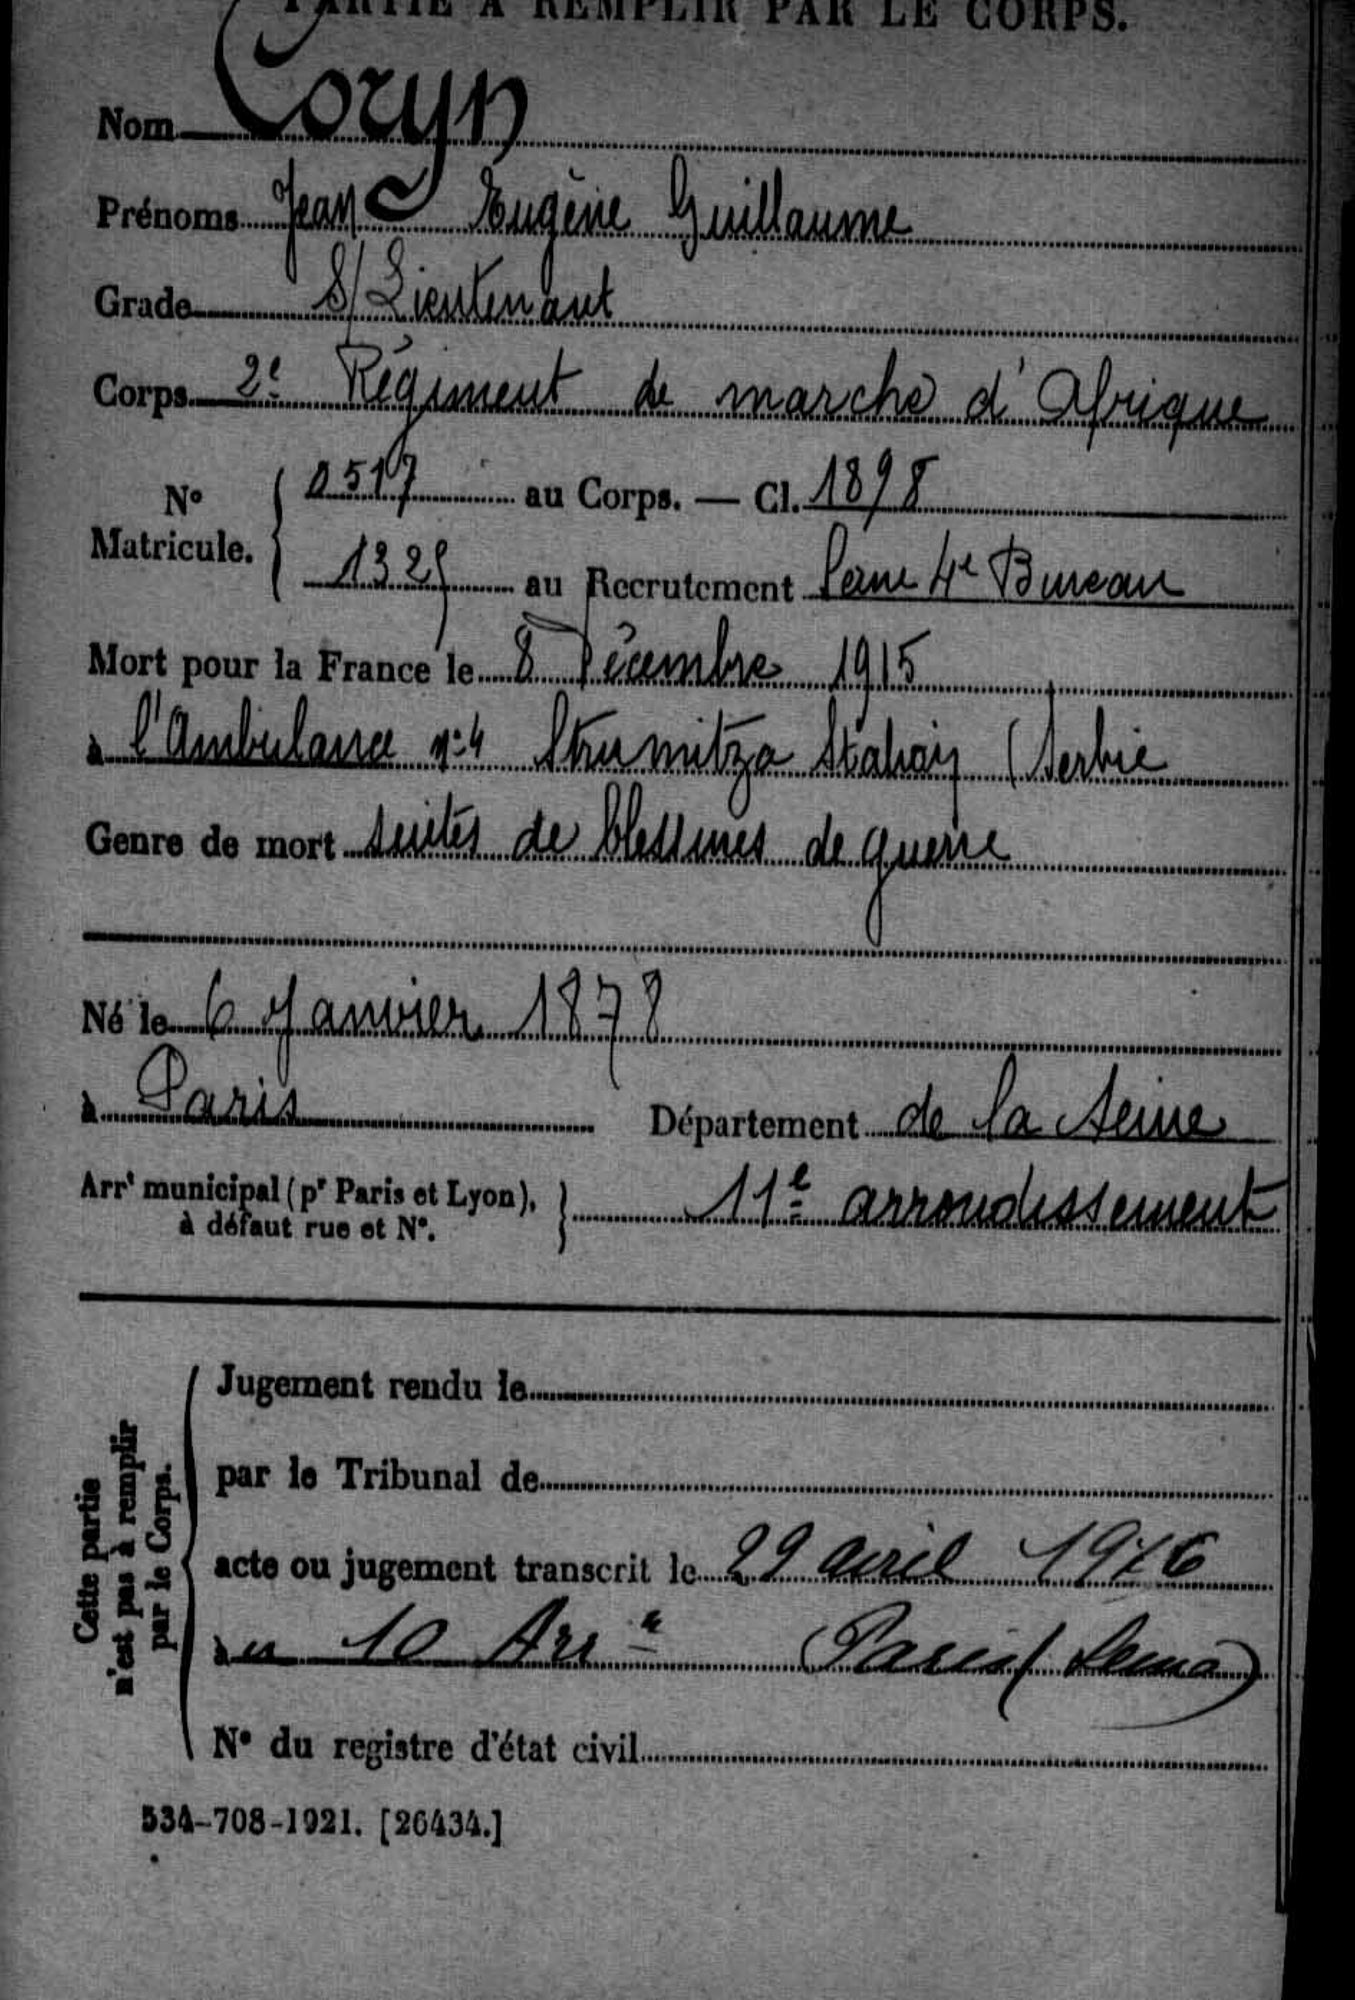 PARTIE À REMPLIR PAR LE CORPS.
Nom Coryn
Prénoms Jean Eugène Guillaume
Grade S/Lieutenant
Corps 2e Régiment de marche d'Afrique
N° Matricule. { 0517 au Corps. — Cl. 1898
1325 au Recrutement Seine 4e Bureau
Mort pour la France le 8 Décembre 1915
à l'Ambulance n°4 Strumitza (Serbie
Genre de mort suites de blessures de guerre
Né le 6 Janvier 1878
à Paris Département de la Seine
Arrt municipal (pr Paris et Lyon), } 11e arrondissement
à défaut rue et N°.
Cette partie
n'est pas à remplir
par le Corps.
Jugement rendu le
par le Tribunal de
acte ou jugement transcrit le 29 avril 1916
à 10 Arr Paris (Seine)
N° du registre d'état civil
534-708-1921. [26434.]